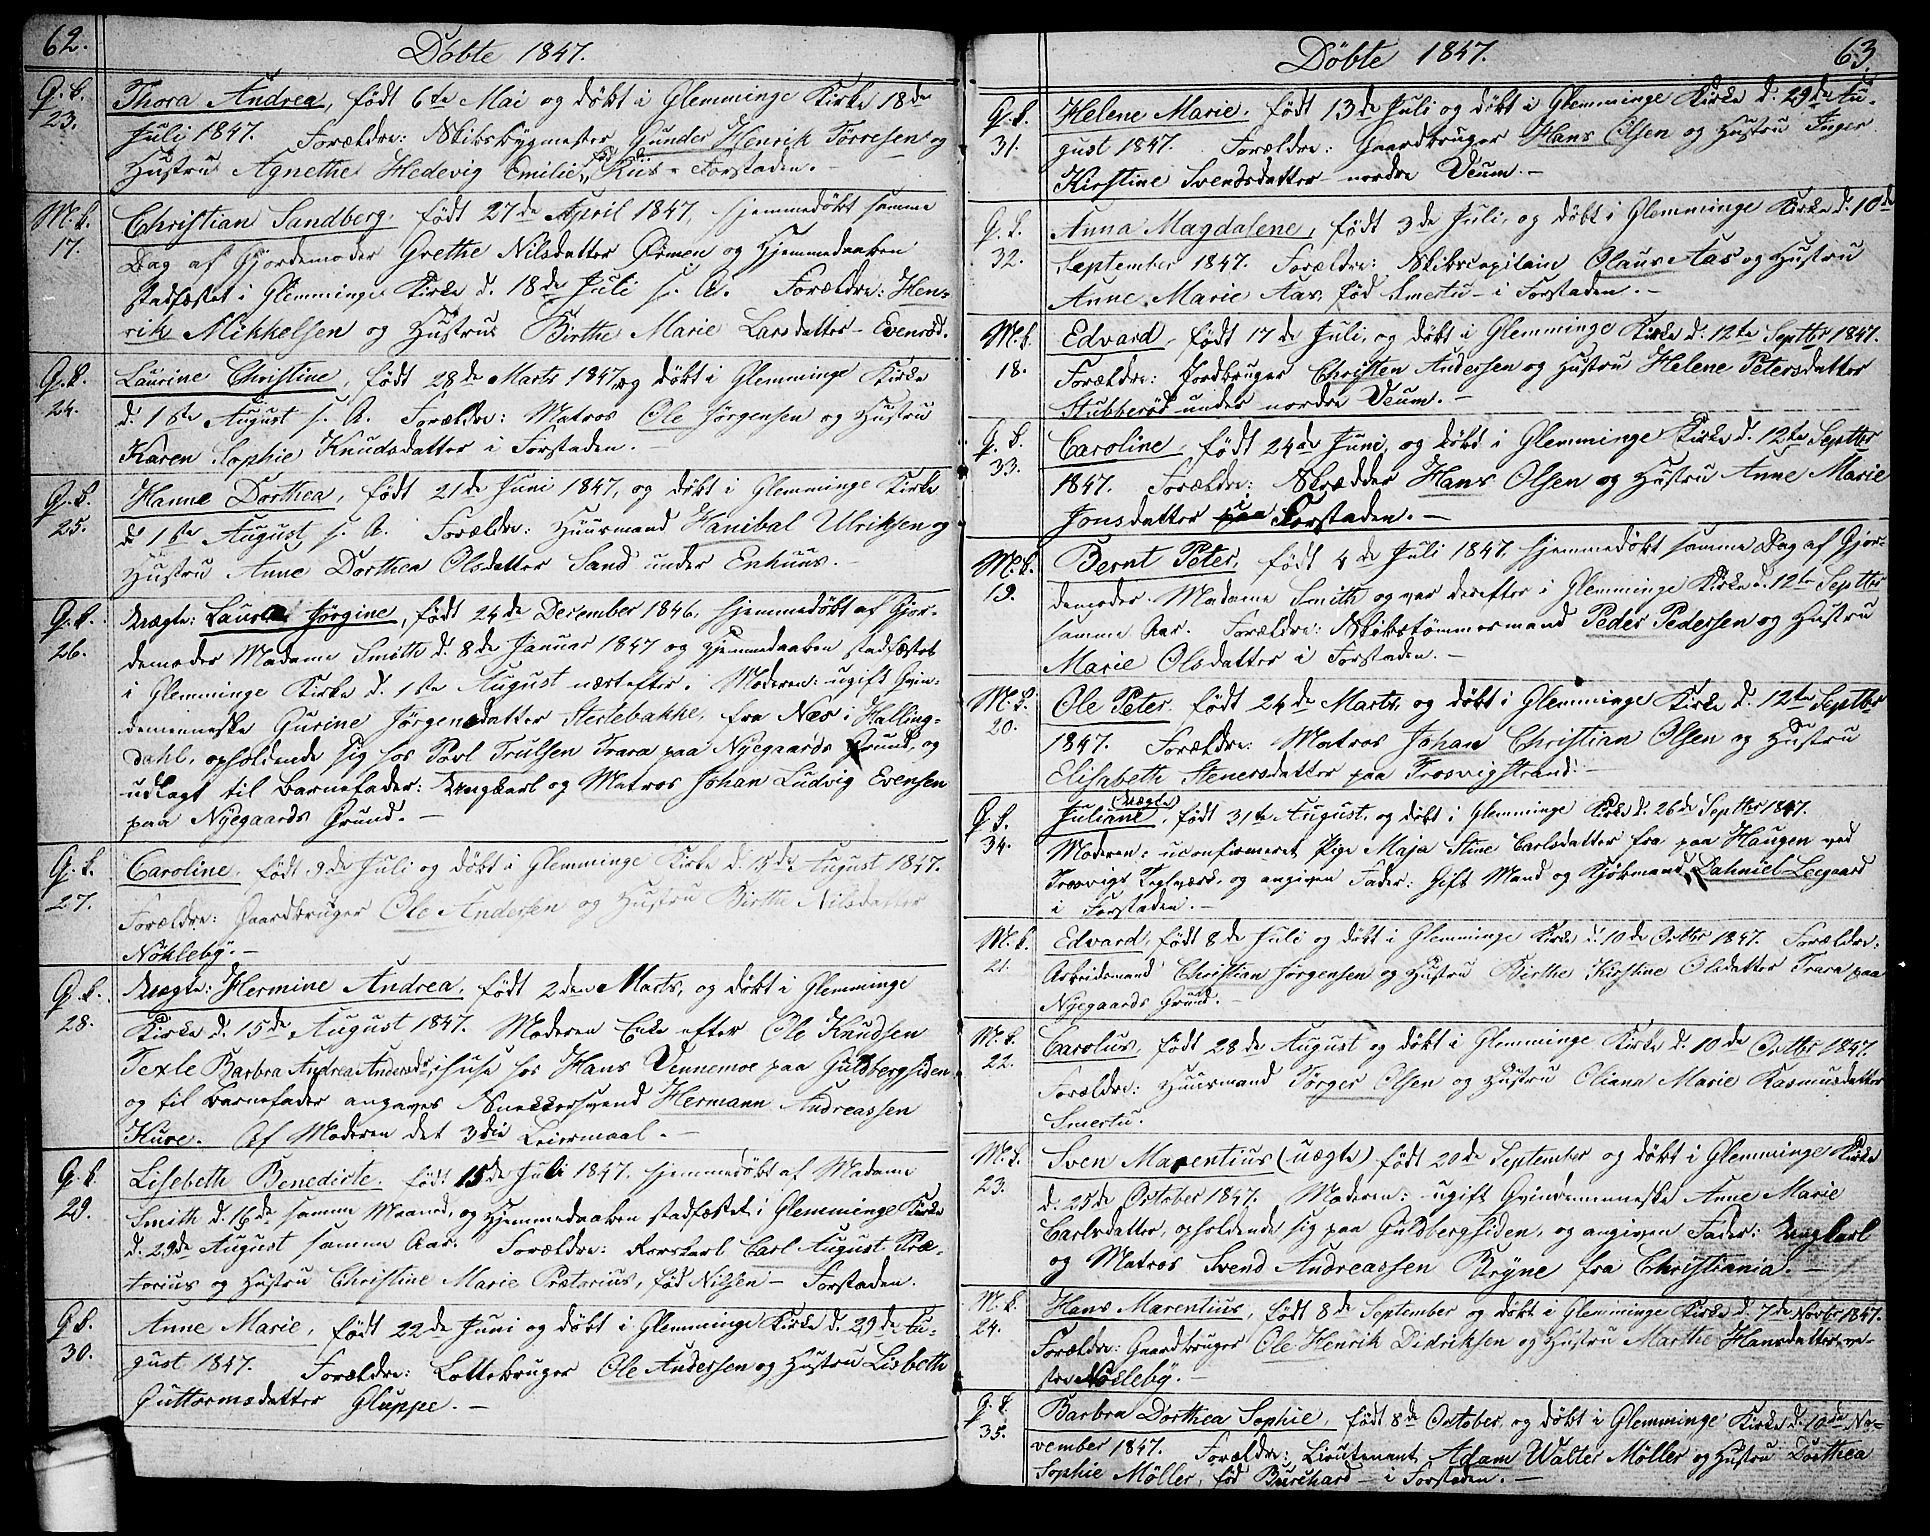 62.
Döbte 1847.
Q. k.
23.
Thora Andrea, født 6te Mai og døbt i Glemminge Kirke 18de
Juli 1847. Forældre: Skibsbygmester Gunder Henrik Törresen og
Hustru Agnethe Hedevig Emilie, fød Riis - Forstaden. -
M. k.
17.
Christian Sandberg, født 27de April 1847, hjemmedøbt samme
Dag af Gjordemoder Grethe Nilsdatter Örmen og Hjemmedaaben
stadfæstet i Glemminge Kirke d. 18de Juli s. A. Forældre: Hen-
rik Mikkelsen og Hustru Birthe Marie Larsdatter - Evenröd.
Q. k.
24.
Laurine Christine, født 28de Marts 1847, og døbt i Glemminge Kirke
d. 1ste August s. A. Forældre: Matros Ole Jörgensen og Hustru
Karen Sophie Knudsdatter i Forstaden.
Q. k.
25.
Hanne Dorthea, født 21de Juni 1847, og døbt i Glemminge Kirke
d. 1ste August s. A. Forældre: Huusmand Hanibal Ulriksen og
Hustru Anne Dorthea Olsdatter Sand under Enhuus. -
Q. k.
26.
Uægte: Laura Jörgine, født 24de December 1846, hjemmedøbt af Gjor-
demoder Madame Smith d. 8de Januar 1847 og Hjemmedaaben stadfæstet
i Glemminge Kirke d. 1ste August næstefter. Moderen: ugift Qvin-
demenneske Gurine Jörgensdatter Stertebakke, fra Næs i Halling-
dahl, opholdende sig hos Povl Trulsen Trara paa Nyegaards Grund, og
udlagt til Barnefader: Ungkarl og Matros Johan Ludvig Evensen
paa Nyegaards Grund. -
Q. k.
27.
Caroline, født 9de Juli og døbt i Glemminge Kirke d. 15de August 1847.
Forældre: Gaardbruger Ole Andersen og Hustru Birthe Nilsdatter
Nökleby. -
Q. k.
28.
Uægte: Hermine Andrea, født 2den Marts, og døbt i Glemminge
Kirke d. 15de August 1847. Moderen Enke efter Ole Knudsen
Texle Barbra Andrea Andersdr, i Huse hos Hans Vennemoe paa Guldbergsiden
og til Barnefader angaves Snekkersvend Hermann Andreassen
Kure. Af Moderen det 3die Leiermaal. -
Q. k.
29.
Lisebeth Benedicte, født 15de Juli 1847. hjemmedøbt af Madame
Smith d. 16de samme Maaned, og Hjemmedaaben stadfæstet i Glemminge Kirke
d. 29de August samme Aar. Forældre: Rorskarl Carl August Præ-
torius og Hustru Christine Marie Prætorius, fød Nilsen - Forstaden.
Q. k.
30.
Anne Marie, født 22de Juni og døbt i Glemminge Kirke d. 29de Au-
gust 1847. Forældre: Lottebruger Ole Andersen og Hustru Lisbeth
Guttormsdatter Gluppe. -
Döbte 1847.
63.
Q. k.
31.
Helene Marie, født 13de Juli og døbt i Glemminge Kirke d. 29de Au-
gust 1847. Forældre: Gaardbruger Hans Olsen og Hustru Inger
Kirstine Svendsdatter - nordre Veum. -
Q. k.
32.
Anna Magdalene, født 3de Juli, og døbt i Glemminge Kirke d. 10de
September 1847. Forældre: Skibscapitain Olaus Aas og Hustru
Anne Marie Aas, fød Smertu - i Forstaden. -
M. k.
18.
Edvard, født 17de Juli, og døbt i Glemminge Kirke d. 12te Septbr 1847.
Forældre: Jordbruger Christen Andersen og Hustru Helene Petersdatter
Stubberød under nordre Veum. -
Q. k.
33.
Caroline, født 24de Juni, og døbt i Glemminge Kirke d. 12te Septbr
1847. Forældre: Skrædder Hans Olsen og Hustru Anne Marie
Jonsdatter paa Forstaden. -
M. k.
19.
Bernt Peter, født 4de Juli 1847. hjemmedøbt samme Dag af Gjor-
demoder Madame Smith og var derefter i Glemminge Kirke d. 12te Septbr
samme Aar. Forældre: Skibstömmermand Peder Pedersen og Hustru
Marie Olsdatter i Forstaden. -
M. k.
20.
Ole Peter, født 24de Marts, og døbt i Glemminge Kirke d. 12te Septbr
1847. Forældre: Matros Johan Christian Olsen og Hustru
Elisabeth Stenersdatter paa Trosvigstrand. -
Q. k.
34.
(uægte)
Juliane, født 31te August, og døbt i Glemminge Kirke d. 26de Septbr 1847.
Moderen: uconfirmeret Pige Maja Stine Carlsdatter fra paa Haugen ved
Trosvigs Teglværk, og angiven Fader: Gift Mand og Kjøbmand Dahniel Leegaard
i Forstaden. -
M. k.
21.
Edvard, født 8de Juli og døbt i Glemminge Kirke d. 10de Octbr 1847. Forældre:
Arbeidsmand Christian Jörgensen og Hustru Birthe Kirstine Olsdatter Trara paa
Nyegaards Grund. -
M. k.
22.
Carolus, født 28de August og døbt i Glemminge Kirke d. 10de Octbr 1847.
Forældre: Huusmand Törger Olsen og Hustru Oliana Marie Rasmusdatter
Smertu.
M. k.
23.
Sven Marentius (uægte) født 20de September og døbt i Glemminge Kirke
d. 25de October 1847. Moderen: ugift Qvindemenneske Anne Marie
Carlsdatter, opholdende sig paa Guldbergsiden, og angiven Fader: Ungkarl
og Matros Svend Andreassen Bryne fra Christiania. -
M. k.
24.
Hans Marentius, født 8de September og døbt i Glemminge Kirke d. 7de Novbr 1847.
Forældre: Gaardbruger Ole Henrik Didriksen og Hustru Marthe Hansdatter, ve-
stre Nöcleby. -
Q. k.
35.
Barbra Dorthea Sophie, født 8de October, og døbt i Glemminge Kirke d. 10de No-
vember 1847. Forældre: Lieutenant Adam Walter Möller og Hustru Dorthea
Sophie Möller, fød Burchard - i Forstaden. -